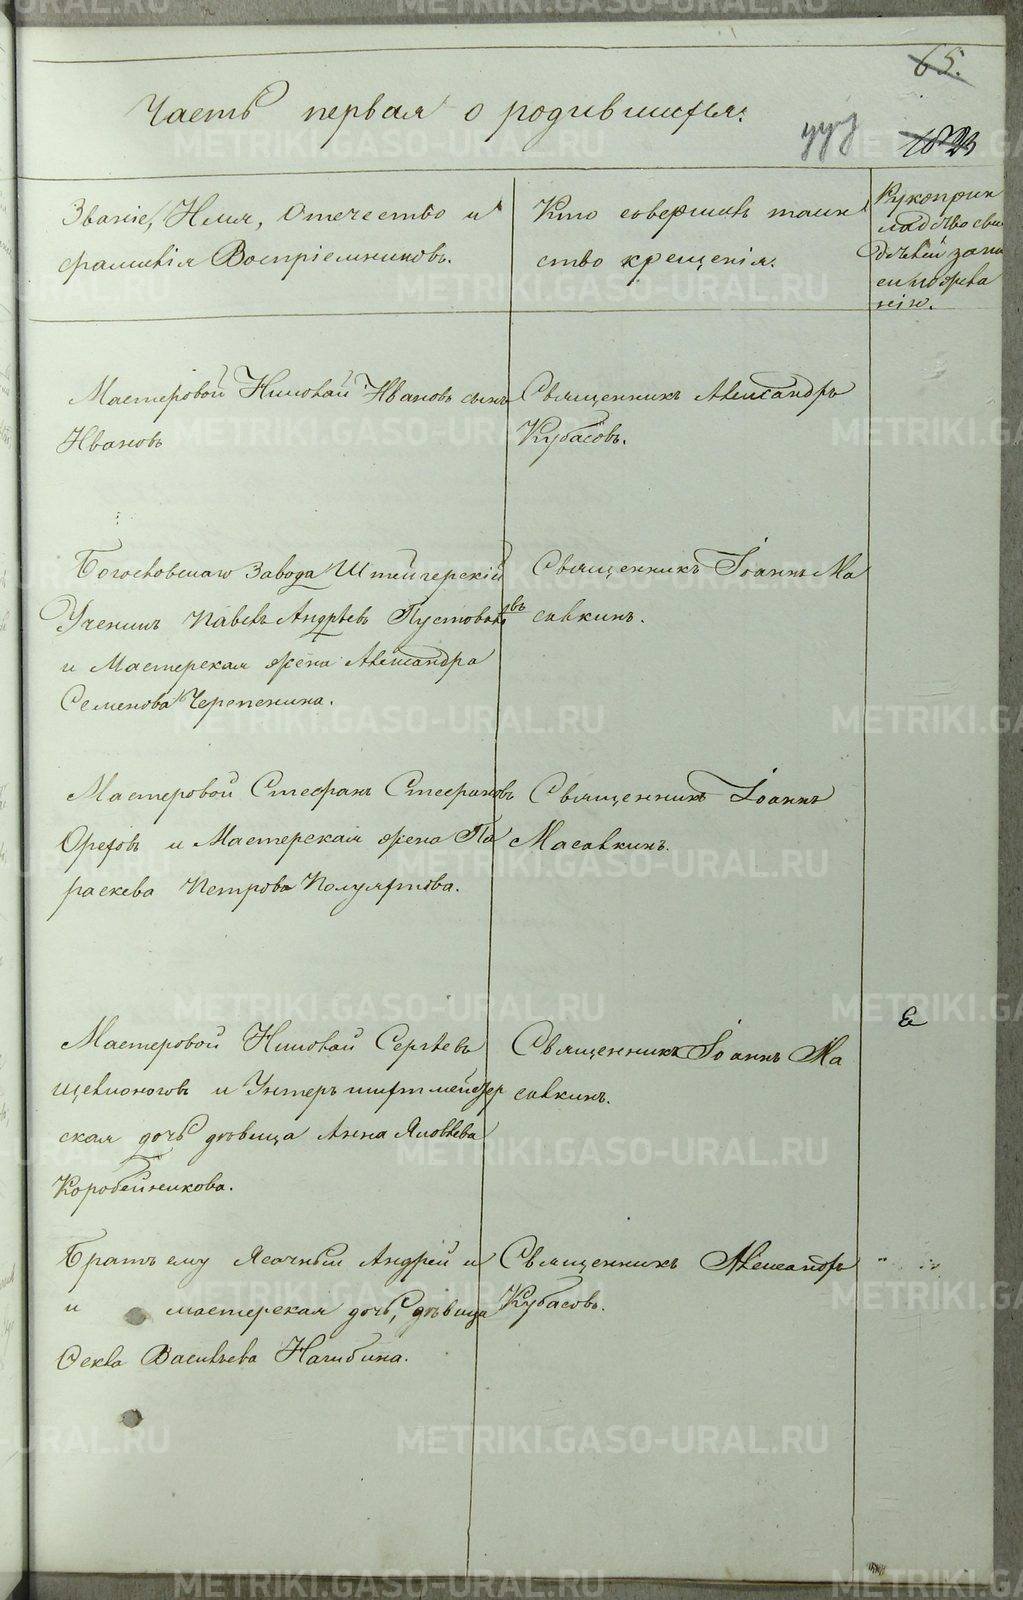 65.
Часть первая о родившихся.
Званіе, Имя, Отечество и
фамилія Воспріемниковъ.
Кто совершилъ таин
ство крещенія.
Рукоприк
ладство сви
дѣтелей запи
си по жела
нію.
Мастеровой Николай Ивановъ сынъ
Ивановъ
Священникъ Александръ
Кубасовъ.
Богословскаго Завода Штейгерскій
Ученикъ Павелъ Андрѣевъ Пустоваловъ
и Мастерская жена Александра
Семенова Черепенина.
Священникъ Іоаннъ Ма
салкинъ.
Мастеровой Стефанъ Стефановъ
Орѣховъ и Мастерская жена Па
раскева Петрова Полуяхтова.
Священникъ Іоаннъ
Масалкинъ.
Мастеровой Николай Сергѣевъ
Щелконоговъ и Унтеръ шихтмейстер
ская дочь дѣвица Анна Яковлева
Коробейникова.
Священникъ Іоаннъ Ма
салкинъ.
Братъ ему Ясачный Андрей и
и мастерская дочь, дѣвица
Фекла Васильева Нагибина.
Священникъ Александръ
Кубасовъ.
METRIKI.GASO-URAL.RU